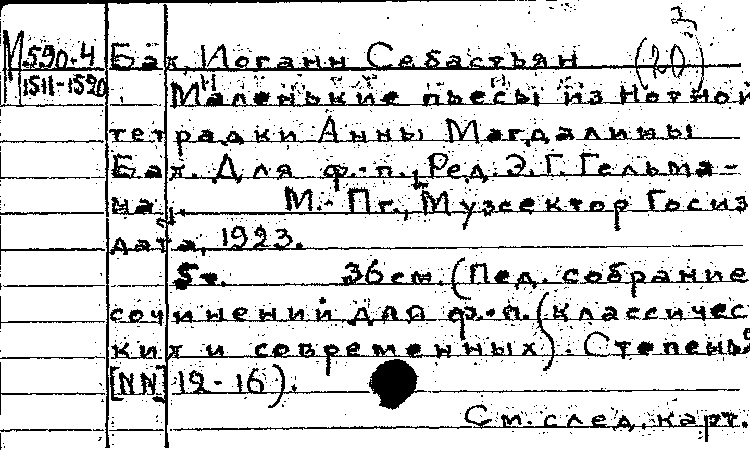 М 590.4 Бах, Иоганн Себастьян (20)
1511-1520 Маленькие пьесы из Нотной
тетрадки Анны Магдалины
Бах. Для ф.-п., Ред. Э. Г. Гельма-
на М.-Пг., Музсектор Госиз
дата, 1923.
5 т. 36 см. (Пед. собрание
сочинений для ф.-п. (классичес
ких и современных). Степень
[NN] 12-16).
См. след. карт.